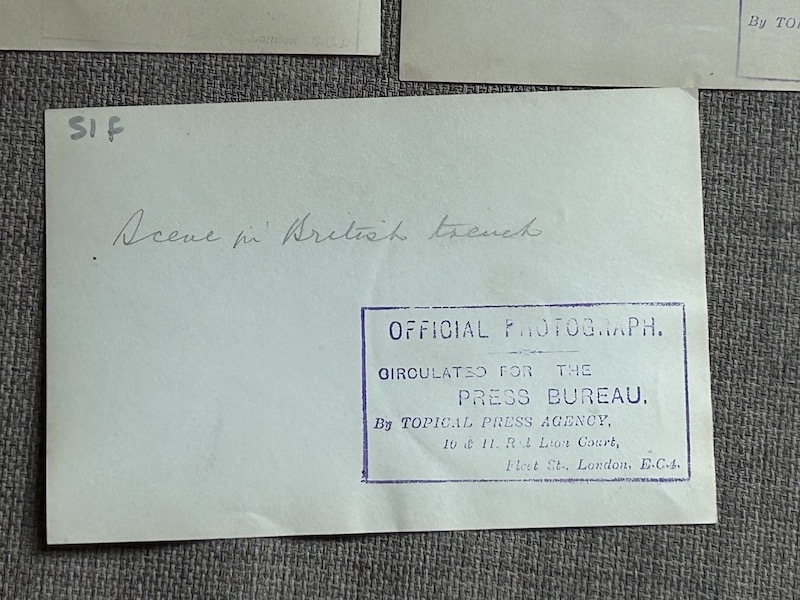 London, E.C.4.
By TOPI
S1F
Scene in British trench
OFFICIAL PHOTOGRAPH.
CIRCULATED FOR THE
PRESS BUREAU.
By TOPICAL PRESS AGENCY,
10 & 11, Red Lion Court,
Fleet St., London, E.C.4.